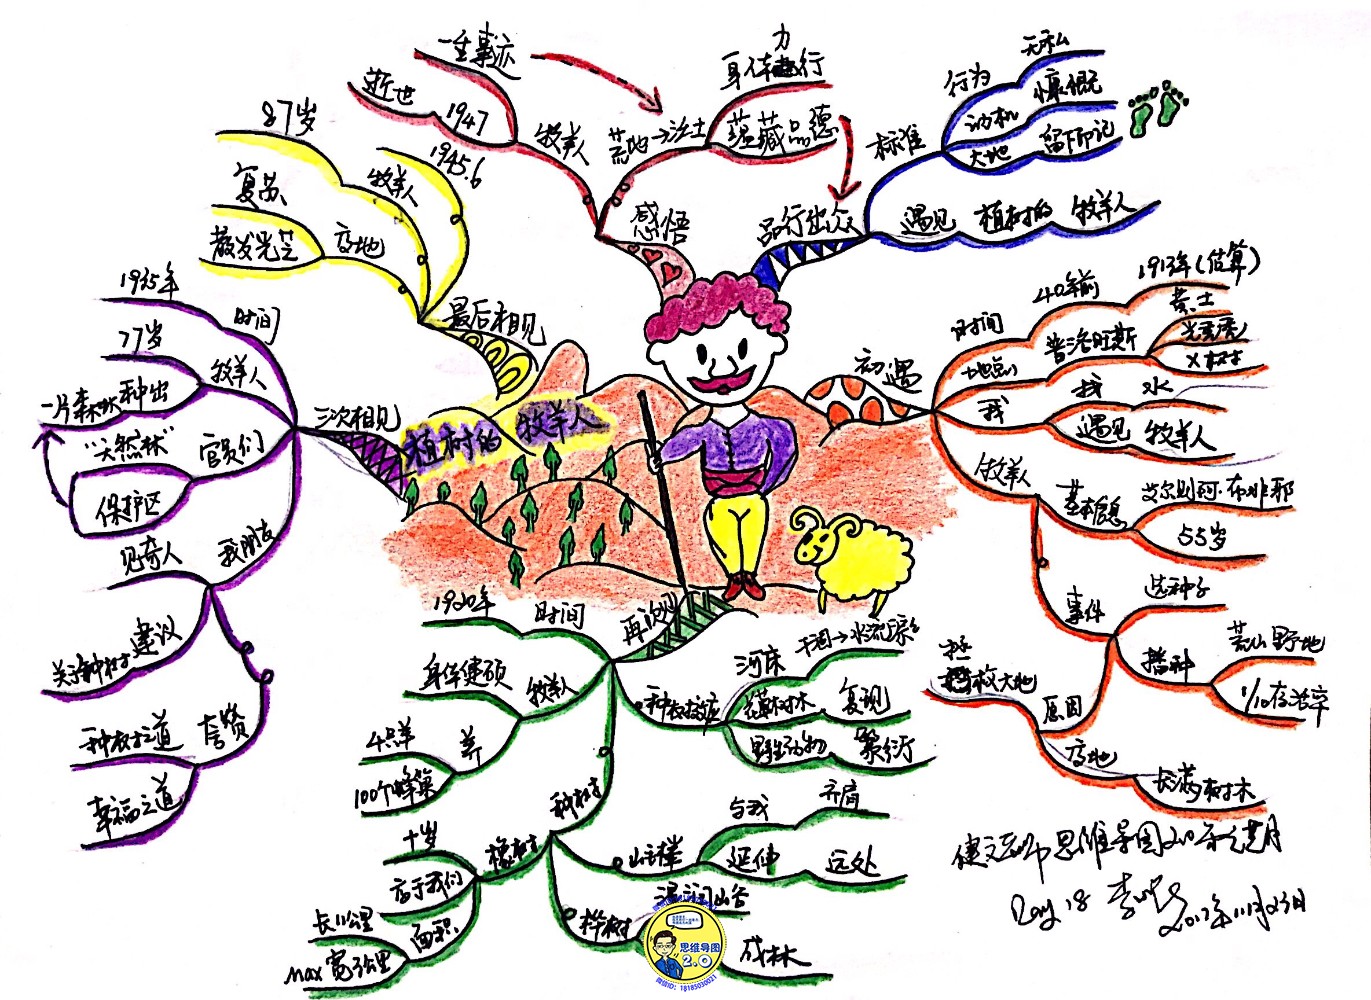 植树的 牧羊人
品行出众
标准
行为
无私
慷慨
动机
大地
留下印记
遇见
植树的
牧羊人
初遇
时间
40年前
1913年(估算)
地点
普洛旺斯
黄土
光秃秃
X树木
我
找
水
遇见
牧羊人
牧羊人
基本信息
艾尔则阿·布非耶
55岁
事件
选种子
播种
荒山野地
1/10存活率
原因
拯救大地
房地
长满树木
再次见
时间
1920年
牧羊人
身体健硕
养
4只羊
100个蜂巢
种树
橡树
十岁
高于我们
面积
长11公里
max 宽3公里
山毛榉
与我
齐肩
延伸
远处
桦树
湿润山谷
成林
种树效应
河床
干涸→水流
花草树木
复现
野生动物
繁衍
三次相见
时间
1935年
牧羊人
77岁
种出
一片森林
官员们
“天然林”
保护区
我朋友
见奇人
建议
关于种树
称赞
种树之道
幸福之道
最后相见
1945.6
牧羊人
87岁
高地
复苏
散发光芒
感悟
牧羊人
1947
逝世
一生事迹
荒地→沃土
身体力行
蕴藏品德
思维导图
2.0
微信ID: 18185030021
Day 18
2017年11月23日